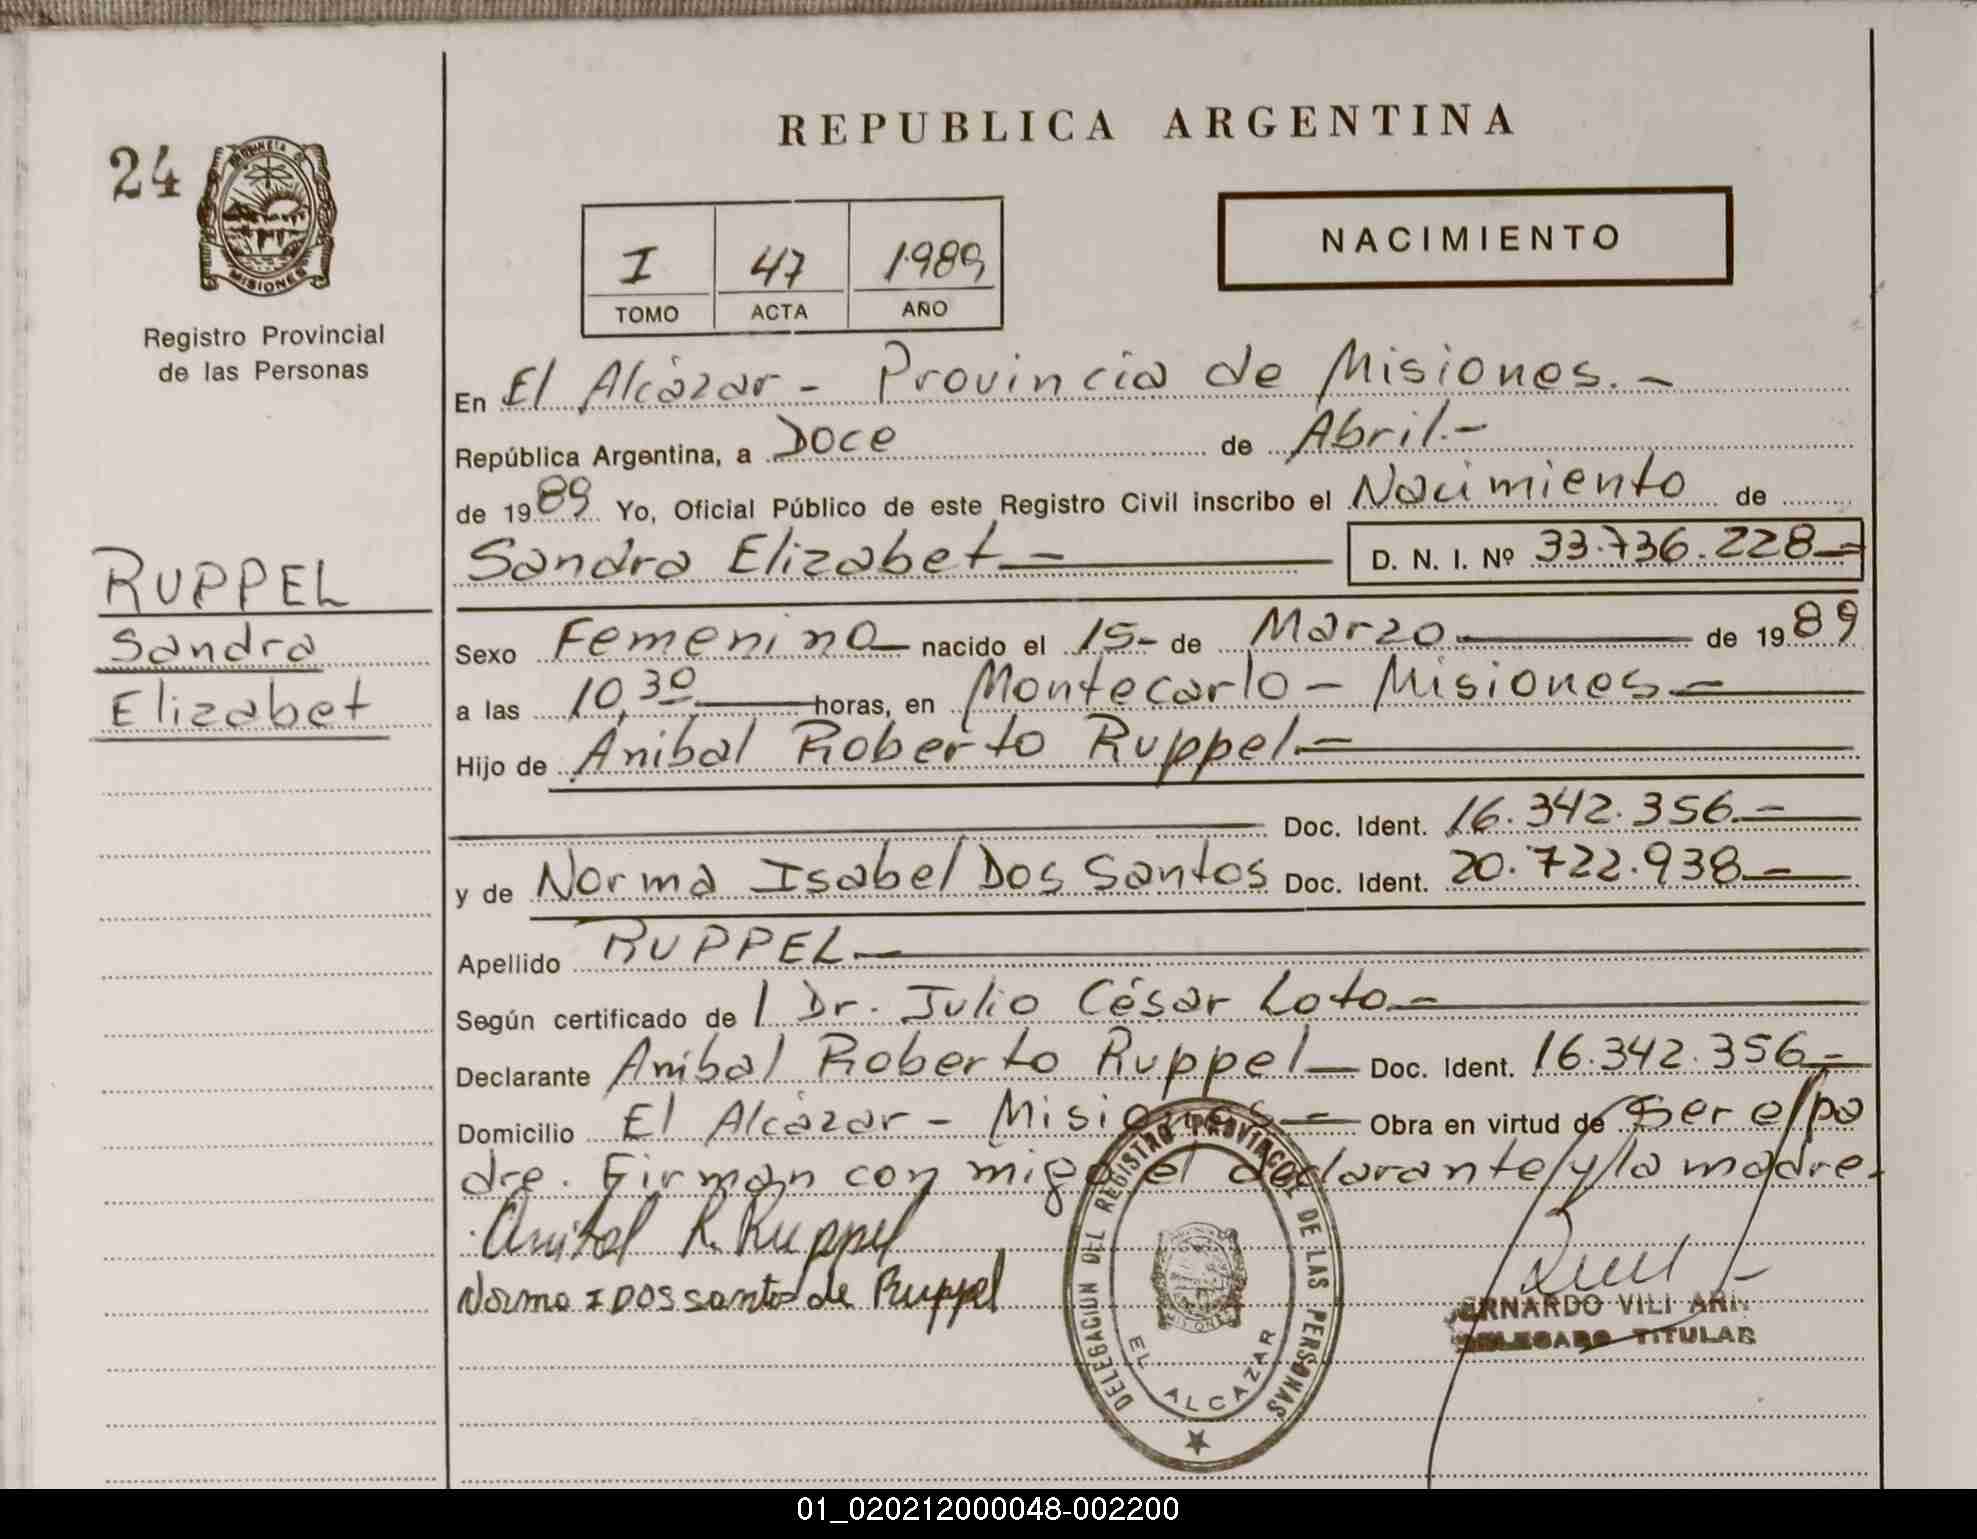 24
PROVINCIA DE
MISIONES
Registro Provincial
de las Personas
RUPPEL
Sandra
Elizabet
REPUBLICA ARGENTINA
I 47 1989
TOMO ACTA AÑO
NACIMIENTO
En El Alcázar - Provincia de Misiones.-
República Argentina, a Doce de Abril.-
de 1989 Yo, Oficial Público de este Registro Civil inscribo el Nacimiento de
Sandra Elizabet- D. N. I. Nº 33.736.228-
Sexo Femenino nacido el 15- de Marzo de 1989
a las 10,30 horas, en Montecarlo - Misiones-
Hijo de Anibal Roberto Ruppel.-
Doc. Ident. 16.342.356.-
y de Norma Isabel Dos Santos Doc. Ident. 20.722.938-
Apellido RUPPEL-
Según certificado de l Dr. Julio César Loto-
Declarante Anibal Roberto Ruppel- Doc. Ident. 16.342.356-
Domicilio El Alcázar - Misiones- Obra en virtud de Ser el pa
dre. Firman con migo el declarante y la madre.
Anibal R. Ruppel
Norma I Dos santos de Ruppel
DELEGACION DEL REGISTRO PROVINCIAL DE LAS PERSONAS
EL ALCAZAR
ERNARDO VILI
DELEGADO TITULAR
01_020212000048-002200